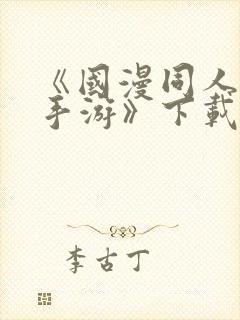 《國漫同人
手游》下載
李古丁